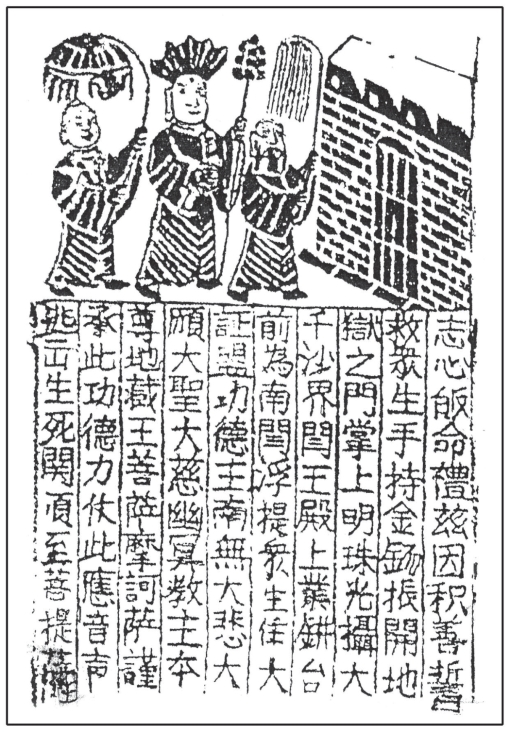 志心皈命禮兹因积善誓
救眾生手持金錫振開地
獄之門掌上明珠光攝大
千沙界閆王殿上業鏡台
前為南閆浮提眾生作大
証盟功德主南無大悲大
願大聖大慈幽冥教主本
尊地藏王菩薩摩訶薩謹
承此功德力仗此應音声
逃出生死関頂至菩提